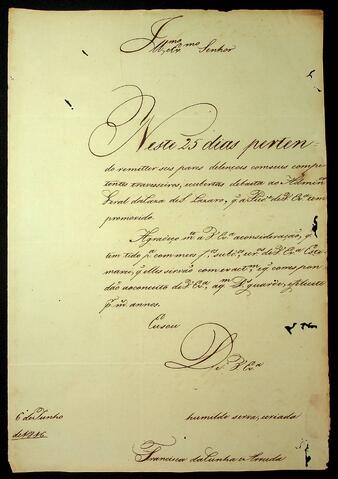 Illmo Exmo Senhor
Neste 25 dias perten-
do remetter seis pares delencoes comseus compe
tentes travesseiros, ecubertas debaita ao Admin
Geral daCaza de S. Lazaro, q a de V. Exa tem
promovido.
Agradeço a V. Exa aconsideração, q
tem tido pa com meus de V. Exa
q elles sirvão com exactm eq corespon
dão aoconceito de V. Exa, a q Ds guarde, efelicite
pr ms annos.
Eusou
De V. Exa
6 de Junho
de 1846
humilde serva, criada
Francisca daCunha e Arruda